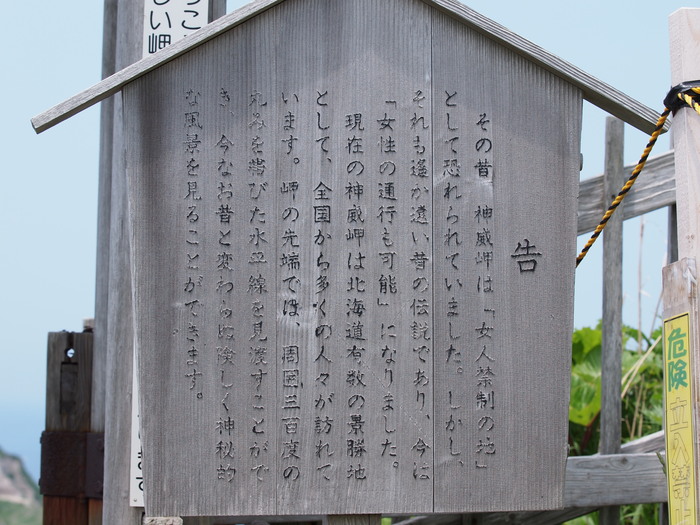 告
その昔 神威岬は「女人禁制の地」
として恐れられていました。しかし、
それも遙か遠い昔の伝説であり、今は
「女性の通行も可能」になりました。
現在の神威岬は北海道有数の景勝地
として、全国から多くの人々が訪れて
います。岬の先端では、周囲三百度の
丸みを帯びた水平線を見渡すことがで
き 今なお昔と変わらぬ険しく神秘的
な風景を見ることができます。
危険